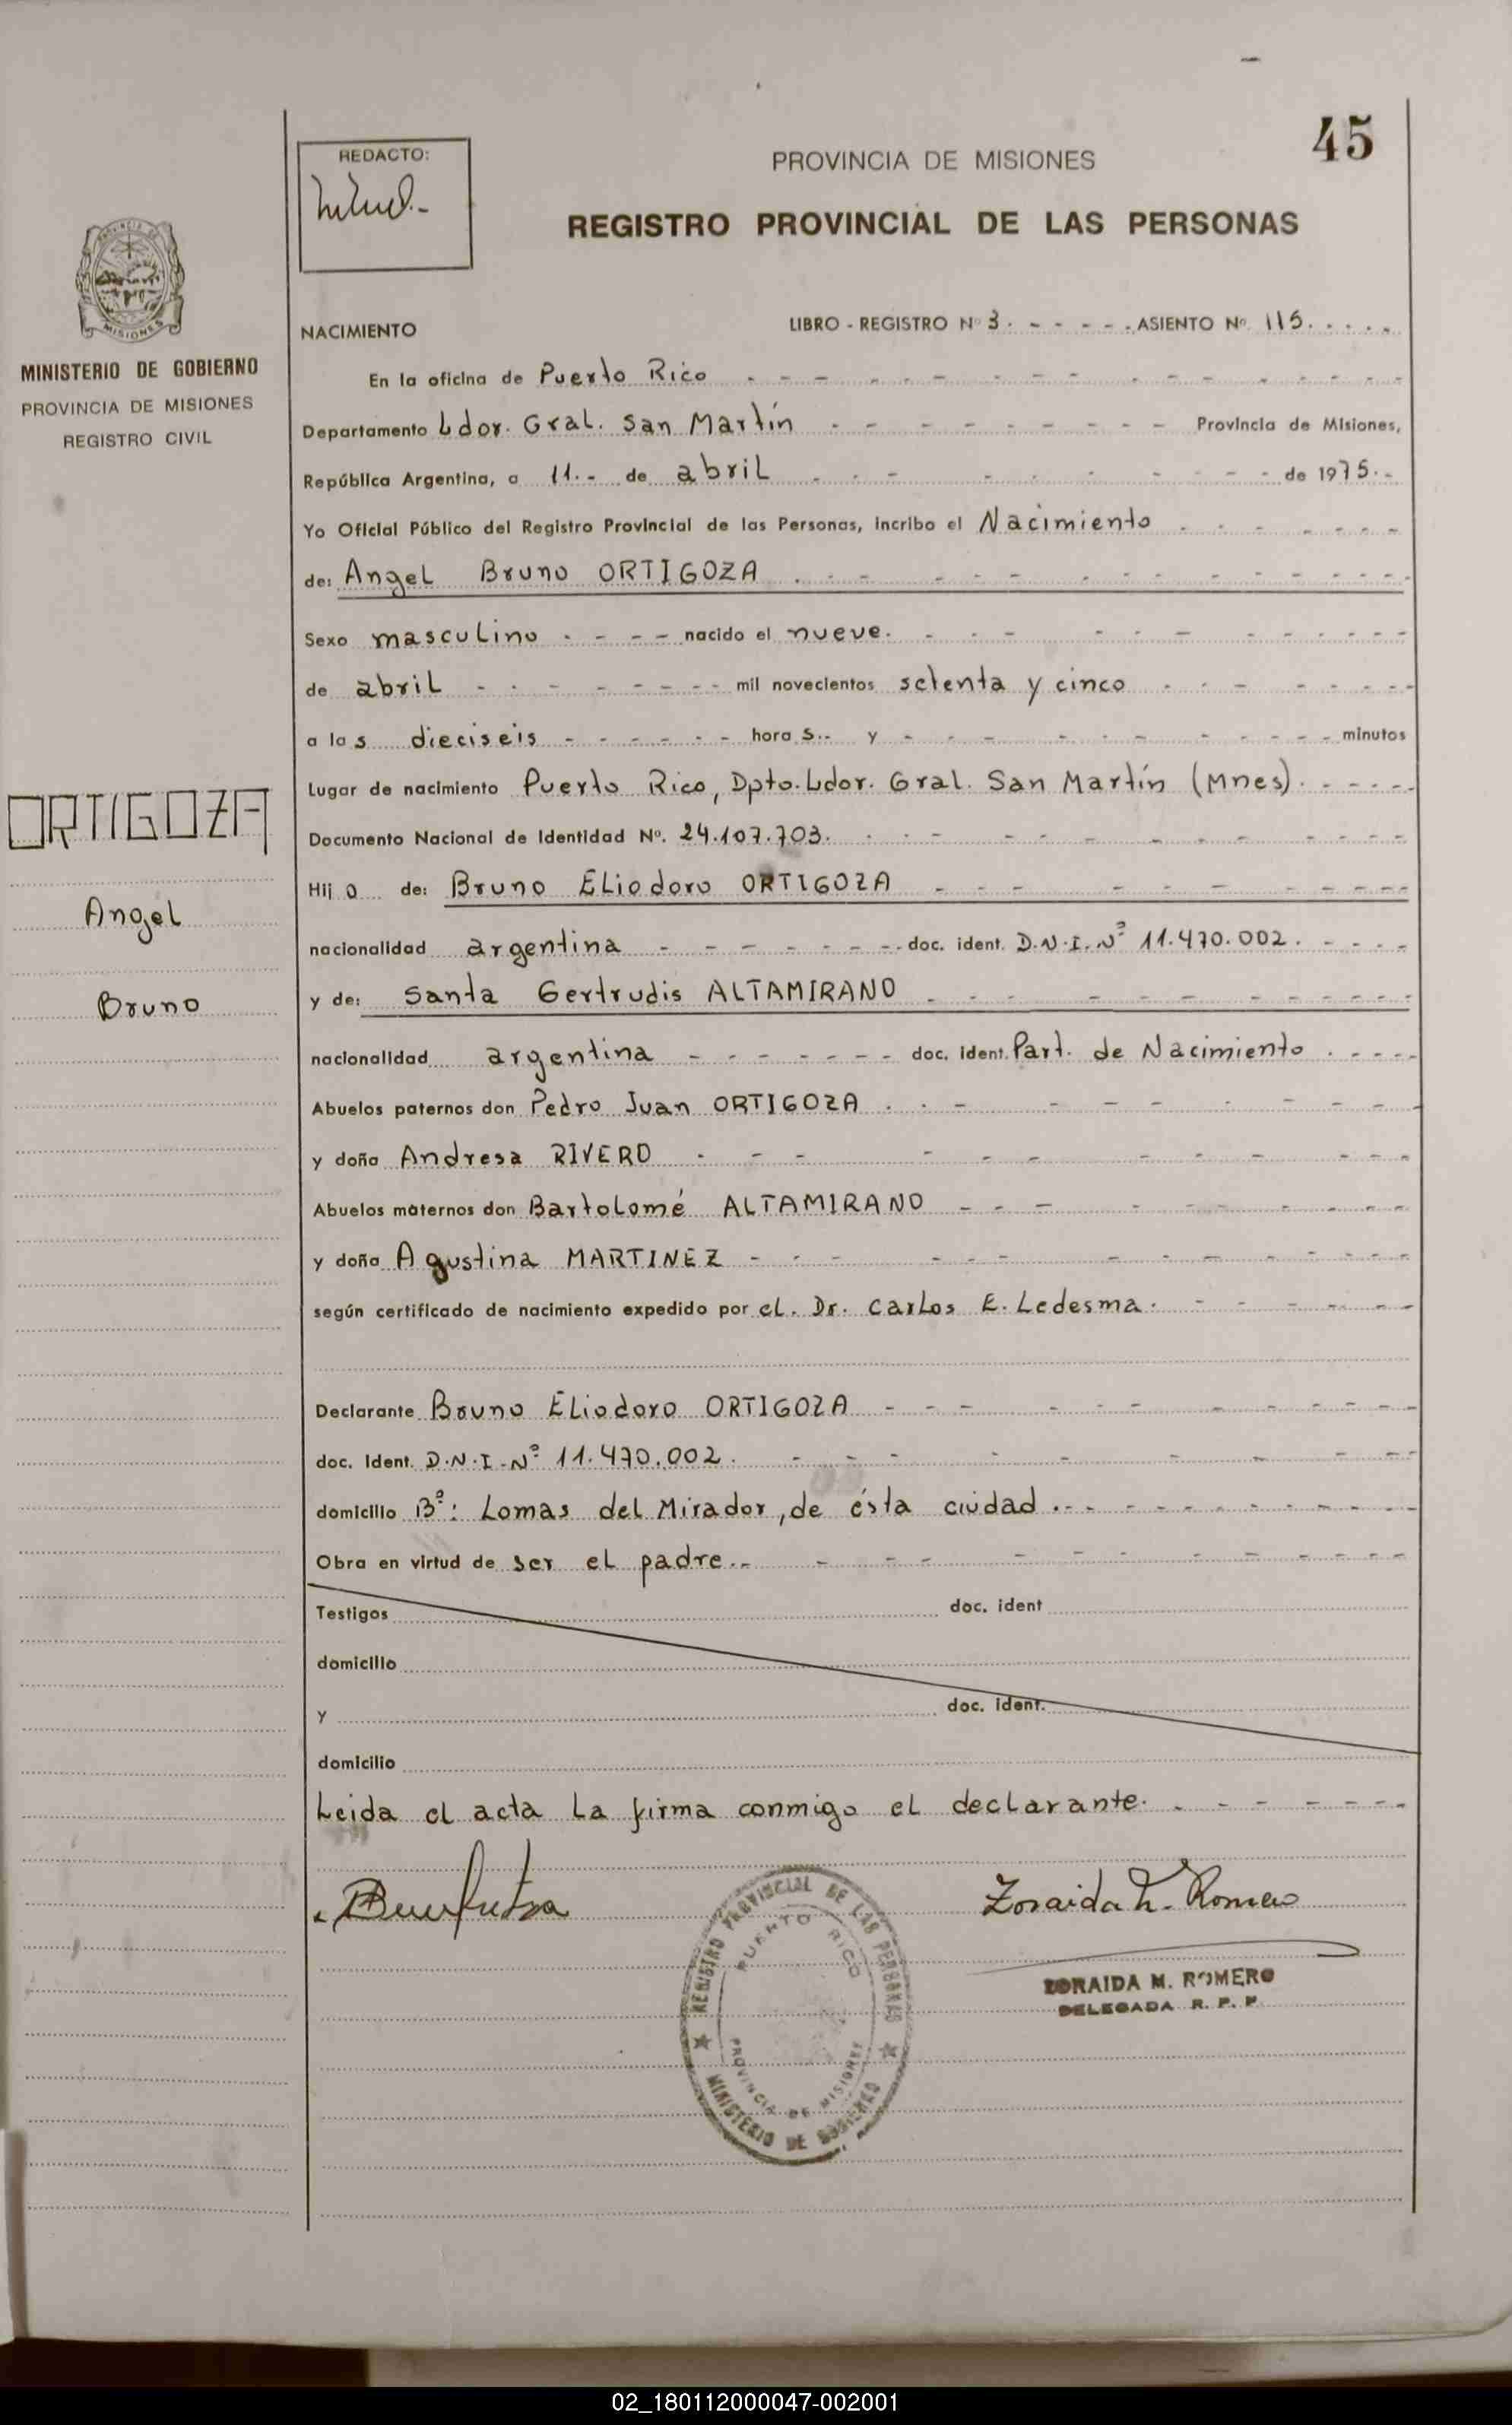 45
REDACTO:
PROVINCIA DE MISIONES
REGISTRO PROVINCIAL DE LAS PERSONAS
MISIONES
MINISTERIO DE GOBIERNO
PROVINCIA DE MISIONES
REGISTRO CIVIL
ORTIGOZA
Angel
Bruno
NACIMIENTO LIBRO - REGISTRO Nº 3. - - - - - . ASIENTO Nº 115. . . . .
En la oficina de Puerto Rico
Departamento Ldor. Gral. San Martín - - - - - - - - - Provincia de Misiones,
República Argentina, a 11.- de abril - - - - - - - de 1975.-
Yo Oficial Público del Registro Provincial de las Personas, incribo el Nacimiento
de: Angel Bruno ORTIGOZA
Sexo masculino - - - - nacido el nueve.
de abril - - - - - - - - mil novecientos setenta y cinco
a las dieciseis - - - - - - hora s.- y - - - - - - - - minutos
Lugar de nacimiento Puerto Rico, Dpto. Ldor. Gral. San Martín (Mnes).
Documento Nacional de Identidad Nº. 24.107.703.
Hij o de: Bruno ELiodoro ORTIGOZA
nacionalidad argentina - - - - - - - doc. ident. D.N.I. Nº 11.470.002.
y de: Santa Gertrudis ALTAMIRANO
nacionalidad argentina - - - - - - - doc. ident. Part. de Nacimiento
Abuelos paternos don Pedro Juan ORTIGOZA
y doña Andresa RIVERO
Abuelos maternos don Bartolomé ALTAMIRANO
y doña Agustina MARTINEZ
según certificado de nacimiento expedido por el. Dr. Carlos E. Ledesma.
Declarante Bruno ELiodoro ORTIGOZA
doc. Ident. D.N.I-Nº 11.470.002.
domicilio Bº: Lomas del Mirador, de ésta ciudad.
Obra en virtud de ser el padre..
Testigos doc. ident
domicilio
y doc. ident.
domicilio
Leida el acta la firma conmigo el declarante.
Zoraida M. Romero
ZORAIDA M. ROMERO
DELEGADA R. P. P.
REGISTRO PROVINCIAL DE LAS PERSONAS
PUERTO RICO
PROVINCIA DE MISIONES
MINISTERIO DE GOBIERNO
02_180112000047-002001